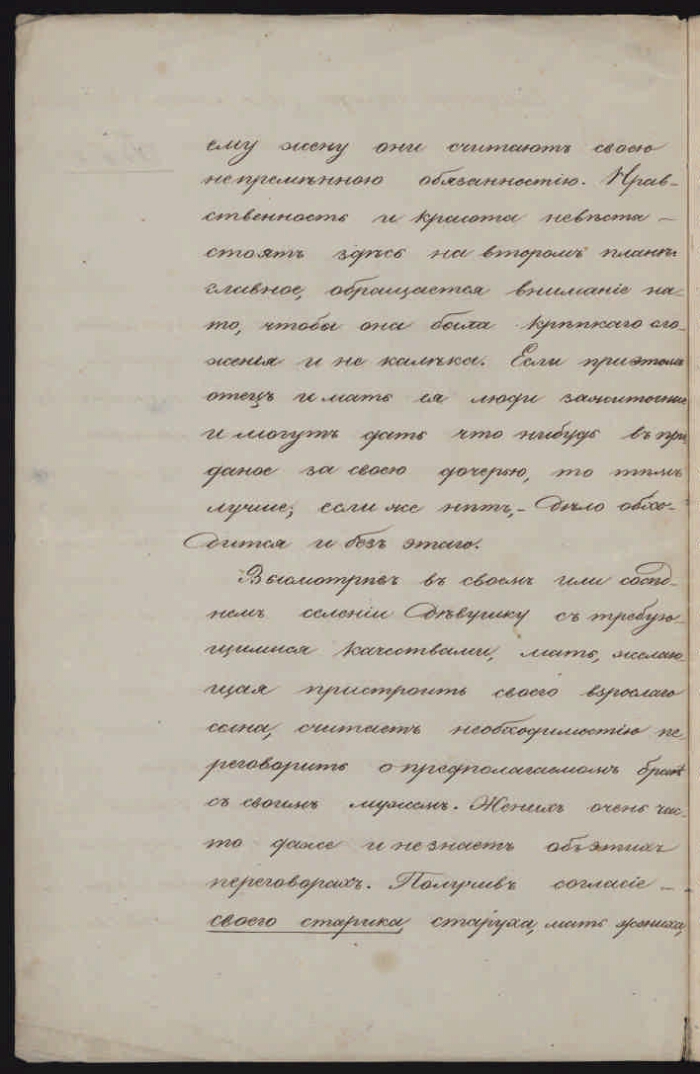 ему жену они считаютъ своею
непремѣнною обязанностію. Нрав-
ственность и красота невѣсты –
стоятъ здѣсь на второмъ планѣ
главное, обращается вниманіе на-
то, чтобы она была крѣпкаго сло-
женія и не калѣка. Если при этомъ
отецъ и мать ея люди зажиточные
и могутъ дать что нибудь въ при
даное за своею дочерью, то тѣмъ
лучше; если же нѣтъ, – дѣло обхо-
дится и безъ этаго.
Высмотрѣвъ въ своемъ или сосѣд-
немъ селеніи дѣвушку съ требую-
щимися качествами, мать, желаю
щая пристроить своего взрослаго
сына, считаетъ необходимостію пе
реговорить о предполагаемомъ бракѣ
съ своимъ мужемъ. Женихъ очень час-
то даже и не знаетъ объ этихъ
переговорахъ. Получивъ согласіе –
своего старика, старуха, мать жениха,